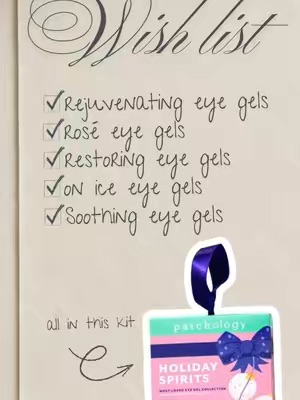 Wish list
Rejuvenating eye gels
Rosé eye gels
Restoring eye gels
on ice eye gels
Soothing eye gels
all in this kit
patchology
HOLIDAY
SPIRITS
MOST LOVED EYE GEL COLLECTION